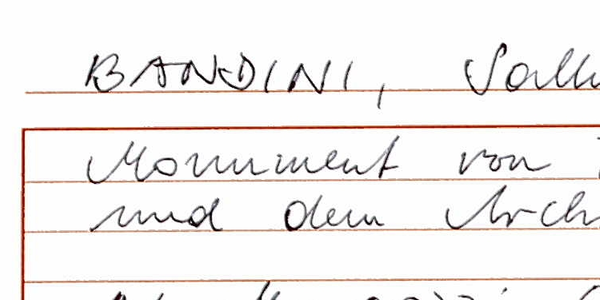 BANDINI, Sall
Monument von
und dem Arch